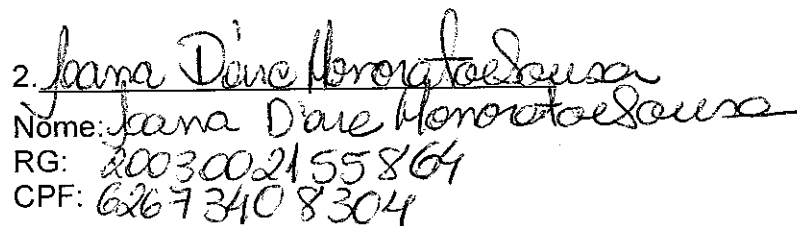 2. Joana D'arc Honorato e Sousa
Nome: Joana D'arc Honorato e Sousa
RG: 2003002155864
CPF: 62673408304